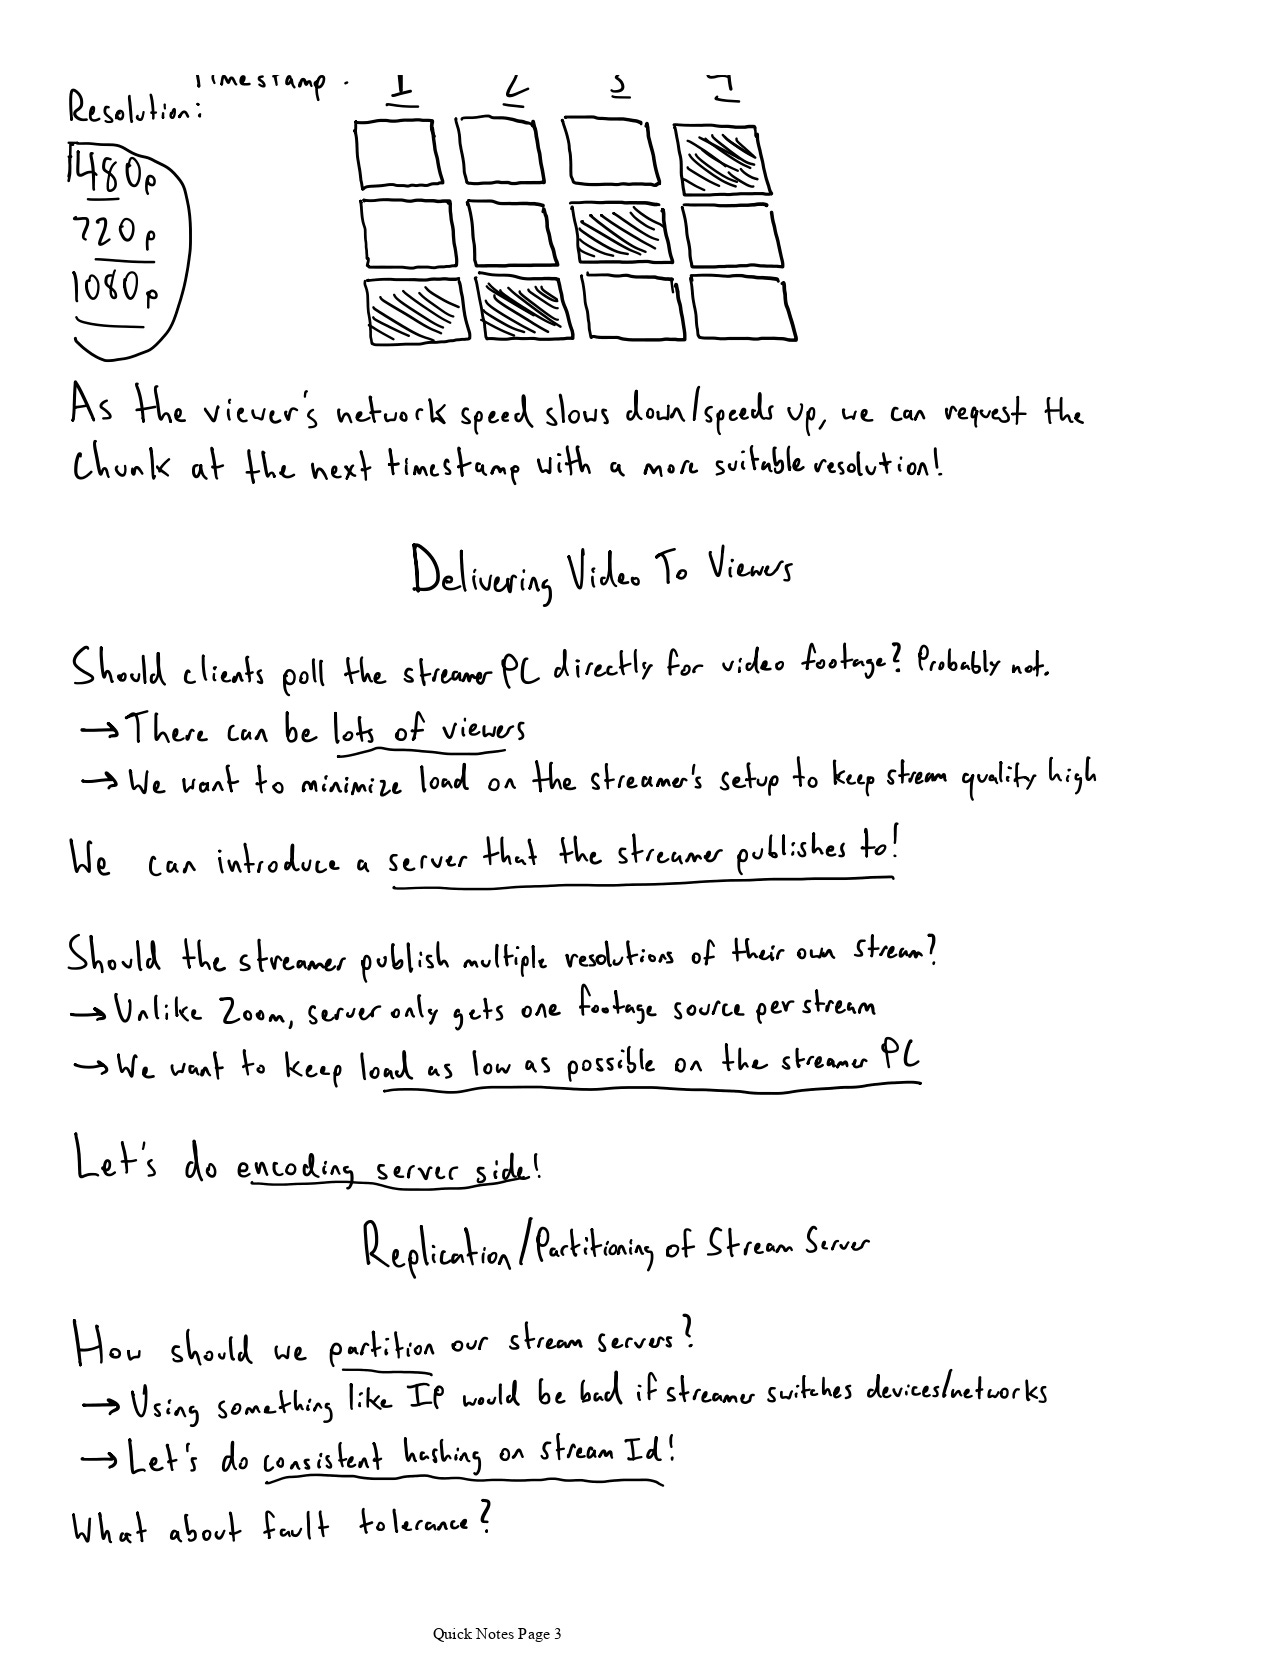 Timestamp: 1 2 3 4
Resolution:
480p
720p
1080p
As the viewer's network speed slows down/speeds up, we can request the
chunk at the next timestamp with a more suitable resolution!
Delivering Video To Viewers
Should clients poll the streamer PC directly for video footage? Probably not.
→ There can be lots of viewers
→ We want to minimize load on the streamer's setup to keep stream quality high
We can introduce a server that the streamer publishes to!
Should the streamer publish multiple resolutions of their own stream?
→ Unlike Zoom, server only gets one footage source per stream
→ We want to keep load as low as possible on the streamer PC
Let's do encoding server side!
Replication/Partitioning of Stream Server
How should we partition our stream servers?
→ Using something like IP would be bad if streamer switches devices/networks
→ Let's do consistent hashing on stream Id!
What about fault tolerance?
Quick Notes Page 3